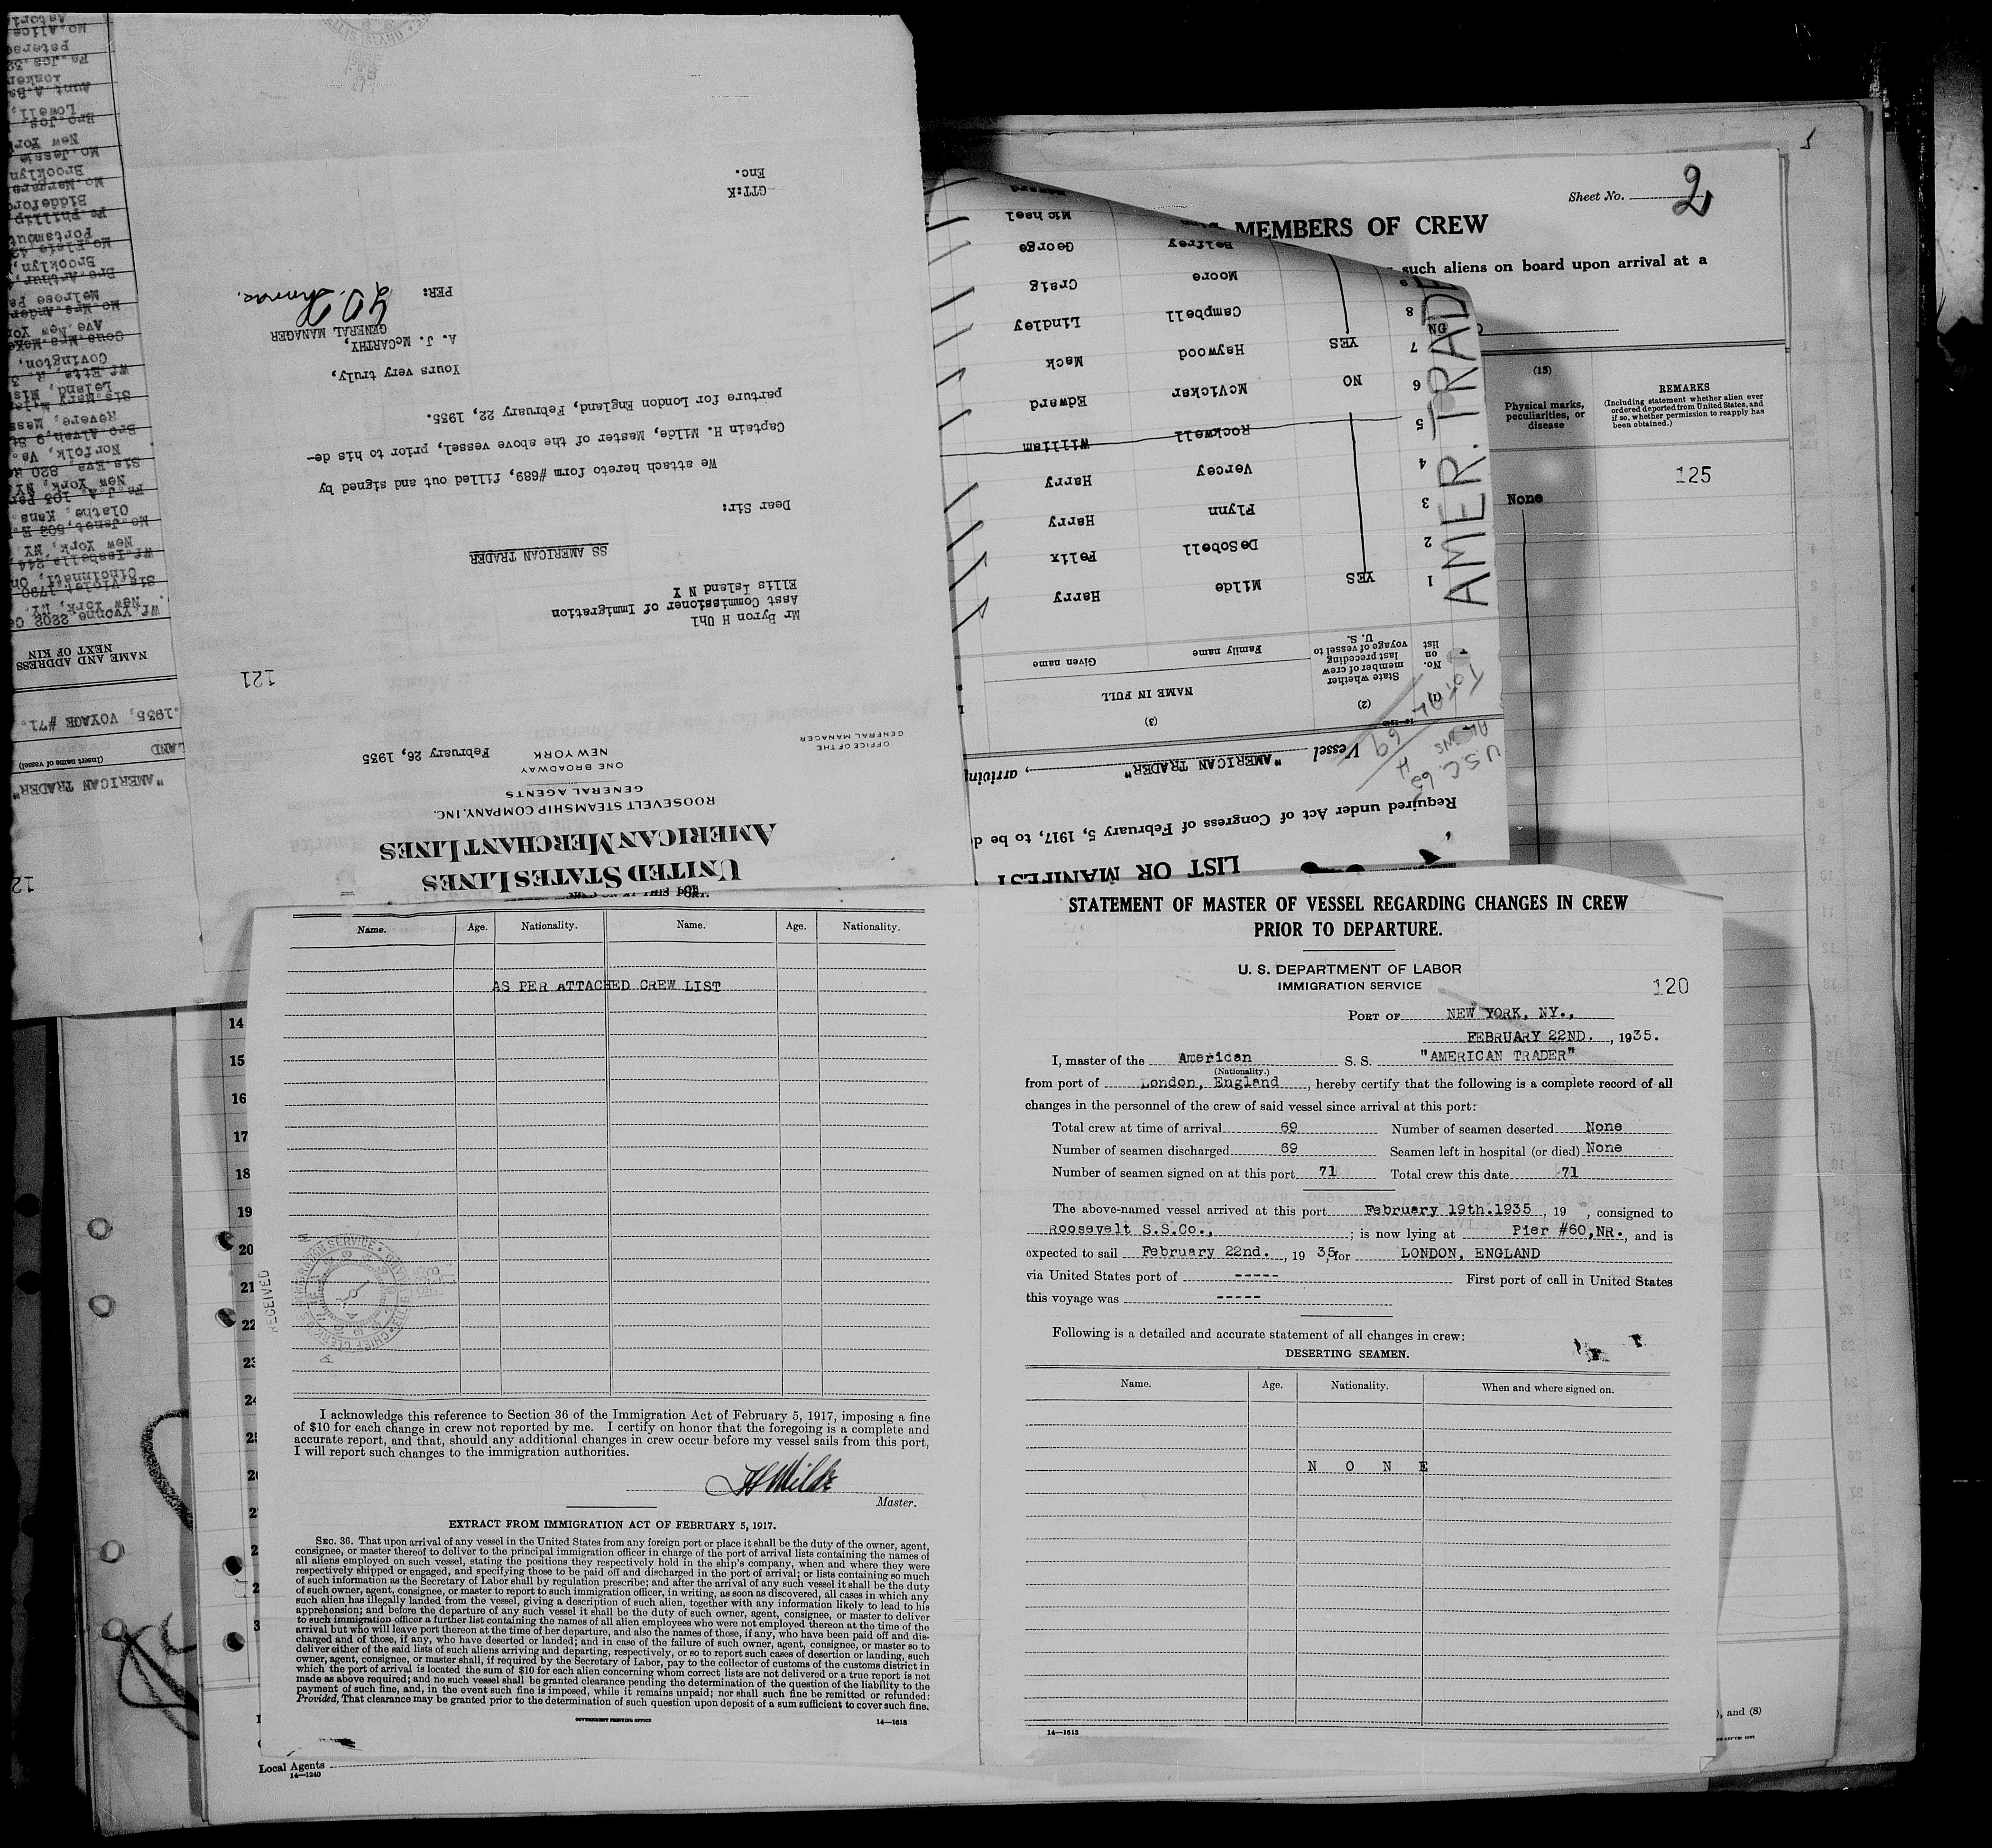 STATEMENT OF MASTER OF VESSEL REGARDING CHANGES IN CREW
PRIOR TO DEPARTURE.
U. S. DEPARTMENT OF LABOR
IMMIGRATION SERVICE
120
PORT OF NEW YORK, NY.,
FEBRUARY 22ND. , 1935.
I, master of the American S. S. "AMERICAN TRADER"
(Nationality.)
from port of London, England , hereby certify that the following is a complete record of all
changes in the personnel of the crew of said vessel since arrival at this port:
Total crew at time of arrival 69 Number of seamen deserted None
Number of seamen discharged 69 Seamen left in hospital (or died) None
Number of seamen signed on at this port 71 Total crew this date 71
The above-named vessel arrived at this port February 19th.1935 , 19 , consigned to
Roosevelt S.S.Co., ; is now lying at Pier #60,NR. , and is
expected to sail February 22nd. , 19 35, for LONDON, ENGLAND
via United States port of ----- First port of call in United States
this voyage was -----
Following is a detailed and accurate statement of all changes in crew:
DESERTING SEAMEN.
Name. Age. Nationality. When and where signed on.
N O N E
14—1613
Name. Age. Nationality. Name. Age. Nationality.
AS PER ATTACHED CREW LIST
RECEIVED
I acknowledge this reference to Section 36 of the Immigration Act of February 5, 1917, imposing a fine
of $10 for each change in crew not reported by me. I certify on honor that the foregoing is a complete and
accurate report, and that, should any additional changes in crew occur before my vessel sails from this port,
I will report such changes to the immigration authorities.
H Milde
Master.
EXTRACT FROM IMMIGRATION ACT OF FEBRUARY 5, 1917.
SEC. 36. That upon arrival of any vessel in the United States from any foreign port or place it shall be the duty of the owner, agent,
consignee, or master thereof to deliver to the principal immigration officer in charge of the port of arrival lists containing the names of
all aliens employed on such vessel, stating the positions they respectively hold in the ship's company, when and where they were
respectively shipped or engaged, and specifying those to be paid off and discharged in the port of arrival; or lists containing so much
of such information as the Secretary of Labor shall by regulation prescribe; and after the arrival of any such vessel it shall be the duty
of such owner, agent, consignee, or master to report to such immigration officer, in writing, as soon as discovered, all cases in which any
such alien has illegally landed from the vessel, giving a description of such alien, together with any information likely to lead to his
apprehension; and before the departure of any such vessel it shall be the duty of such owner, agent, consignee, or master to deliver
to such immigration officer a further list containing the names of all alien employees who were not employed thereon at the time of the
arrival but who will leave port thereon at the time of her departure, and also the names of those, if any, who have been paid off and dis-
charged and of those, if any, who have deserted or landed; and in case of the failure of such owner, agent, consignee, or master so to
deliver either of the said lists of such aliens arriving and departing, respectively, or so to report such cases of desertion or landing, such
owner, agent, consignee, or master shall, if required by the Secretary of Labor, pay to the collector of customs of the customs district in
which the port of arrival is located the sum of $10 for each alien concerning whom correct lists are not delivered or a true report is not
made as above required; and no such vessel shall be granted clearance pending the determination of the question of the liability to the
payment of such fine, and, in the event such fine is imposed, while it remains unpaid; nor shall such fine be remitted or refunded:
Provided, That clearance may be granted prior to the determination of such question upon deposit of a sum sufficient to cover such fine.
GOVERNMENT PRINTING OFFICE 14—1613
Local Agents
14—1240
14
15
16
17
18
19
20
21
22
23
UNITED STATES LINES
AMERICAN MERCHANT LINES
ROOSEVELT STEAMSHIP COMPANY, INC.
GENERAL AGENTS
ONE BROADWAY
NEW YORK
OFFICE OF THE
GENERAL MANAGER
February 26, 1935
121
Mr Byron H Uhl
Asst Commissioner of Immigration
Ellis Island N Y
SS AMERICAN TRADER
Dear Sir:
We attach hereto form #689, filled out and signed by
Captain H. Milde, Master of the above vessel, prior to his de-
parture for London England, February 22, 1935.
Yours very truly,
A. J. McCARTHY,
GENERAL MANAGER
PER:
GTT:K
Enc.
LIST OR MANIFEST
Required under Act of Congress of February 5, 1917, to be d
Vessel "AMERICAN TRADER" , arriving
U.S.C. 65
4
Total 69
AMER. TRAD
(1) (2) (3)
No. on list
State whether member of crew last preceding voyage of vessel to U. S.
NAME IN FULL
Family name Given name
1 YES Milde Harry
2 DeSobell Felix
3 Flynn Harry
4 Vercey Harry
5 Rockwell William
6 NO McVicker Edward
7 YES Haywood Mack
8 Campbell Lindley
Moore Craig
Belfrey George
Michael
Sheet No. 2
MEMBERS OF CREW
such aliens on board upon arrival at a
(15)
Physical marks, peculiarities, or disease
REMARKS
(Including statement whether alien ever
ordered deported from United States, and
if so, whether permission to reapply has
been obtained.)
125
None
), and (8)
"AMERICAN TRADER"
(Insert name of vessel)
.1935, VOYAGE #71.
NAME AND ADDRESS
NEXT OF KIN
Wf.Yvonne,2202
New York, NY.
Sis Violet 1790
Cincinnati,
Wf.Isabella,244
New York, NY.
Mo.Janet,503 E.
Olathe, Kans.
Fa.J.A. 103
New York, NY
Sis.Eva, 820
Norfolk, Va.
Bro.Alven,9
Revere, Mass
Sis Mary
Leland, Mis
Wf Etta, R. 3
Covington,
Cous.Mrs.
Ave.New Yor
Mo.Mrs.Anders
Melrose
Bro.Arthur,
Brooklyn,
Mo.Elsie,42
Portsmout
Fa Phillip
Biddeford
Mo.Margaret
Brooklyn
Mo.Jessie
New York
Bro.Jos.
Lowell,
Aunt A.
Yonkers
Fa.Jos.
Peterso
Mo.Alice
Astoria